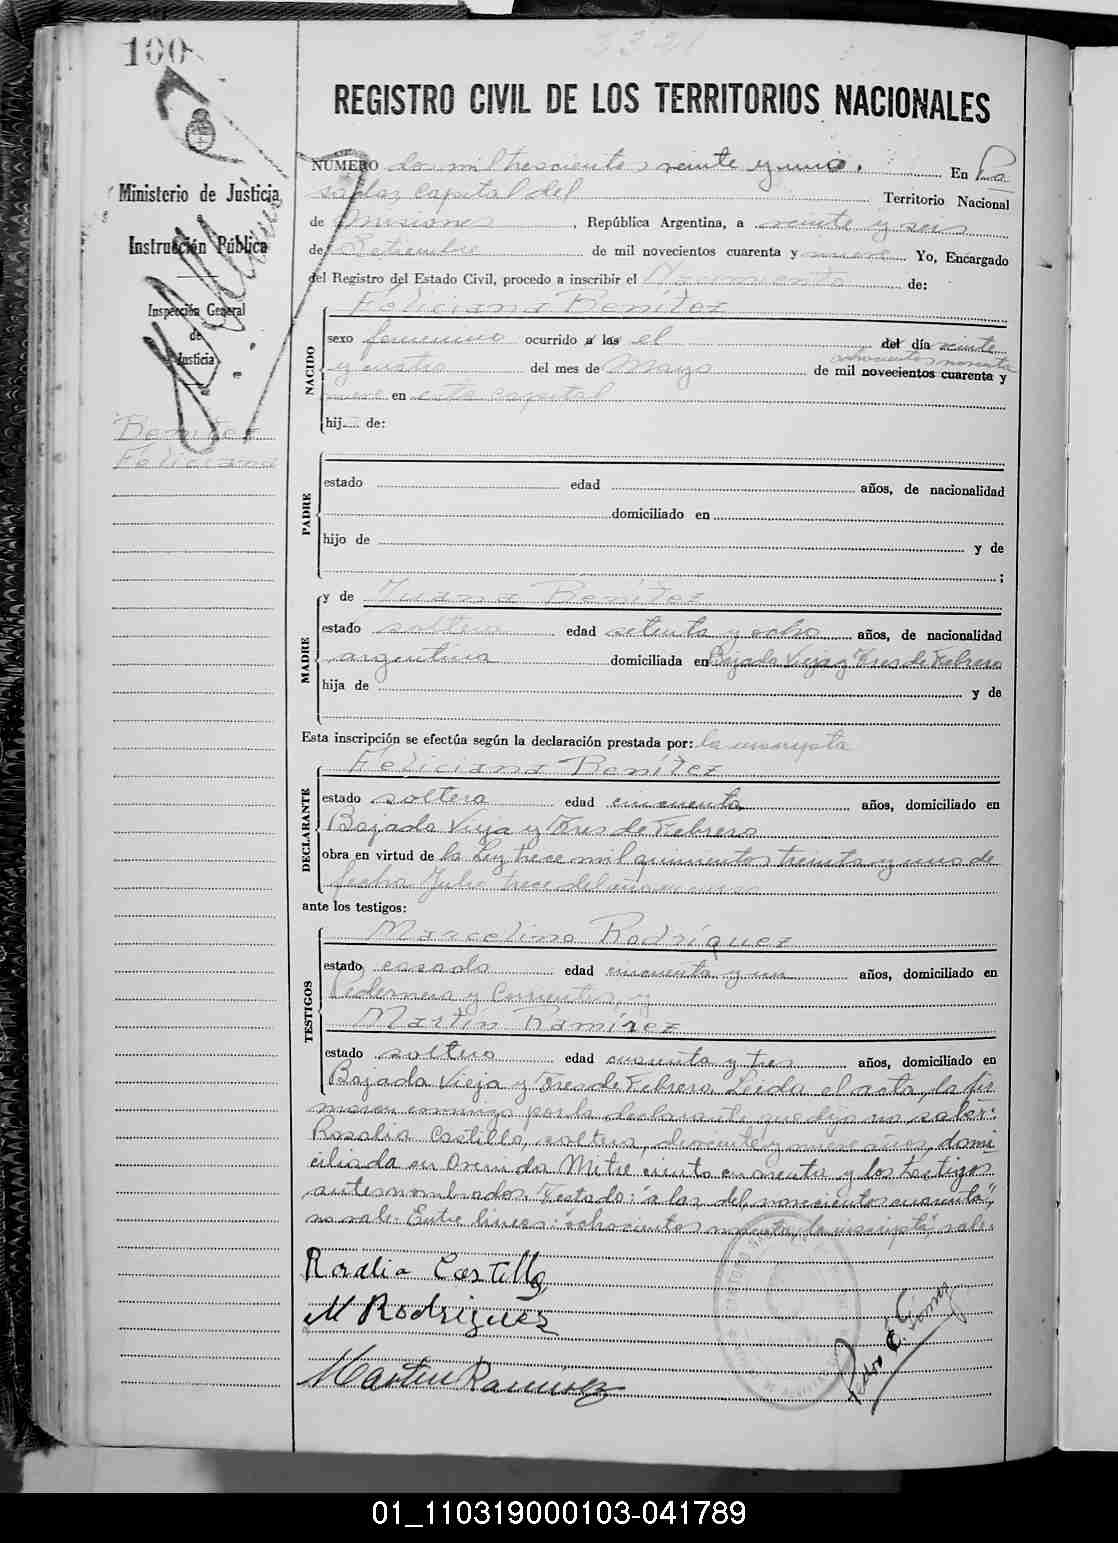 100
REGISTRO CIVIL DE LOS TERRITORIOS NACIONALES
Ministerio de Justicia
Instrucción Pública
Inspección General
de
Justicia
Benitez
Feliciana
NÚMERO dos mil trescientos veinte y uno. En Po
sadas capital del Territorio Nacional
de Misiones, República Argentina, a veinte y seis
de Setiembre de mil novecientos cuarenta y nueve Yo, Encargado
del Registro del Estado Civil, procedo a inscribir el Nacimiento de:
NACIDO
Feliciana Benítez
sexo femenino ocurrido a las el del día veinte
ochocientos noventa
y cuatro del mes de Mayo de mil novecientos cuarenta y
nueve en esta capital
hij de:
PADRE
estado edad años, de nacionalidad
domiciliado en
hijo de y de
;
MADRE
y de Juana Benítez
estado soltera edad setenta y ocho años, de nacionalidad
argentina domiciliada en Bajada Vieja y Tres de Febrero
hija de y de
Esta inscripción se efectúa según la declaración prestada por: la inscripta
DECLARANTE
Feliciana Benítez
estado soltera edad cincuenta años, domiciliado en
Bajada Vieja y Tres de Febrero
obra en virtud de la Ley trece mil quinientos treinta y uno de
fecha Julio trece del año en curso
ante los testigos:
TESTIGOS
Marcelino Rodríguez
estado casado edad cincuenta y un años, domiciliado en
Pedernera y Corrientes, y
Martín Ramírez
estado soltero edad cuarenta y tres años, domiciliado en
Bajada Vieja y Tres de Febrero. Leida el acta, la fir
maron conmigo por la declarante que dijo no saber:
Rosalia Castillo, soltera, diecinueve años, domi
ciliada en Avenida Mitre ciento cincuenta y los testigos
antes nombrados. Testado: "a las, del, novecientos cuarenta",
no vale. Entre lineas: "ochocientos noventa, la inscripta", vale.
Rosalia Castillo
M Rodriguez
Martin Ramirez
Pedro E. Gómez
01_110319000103-041789